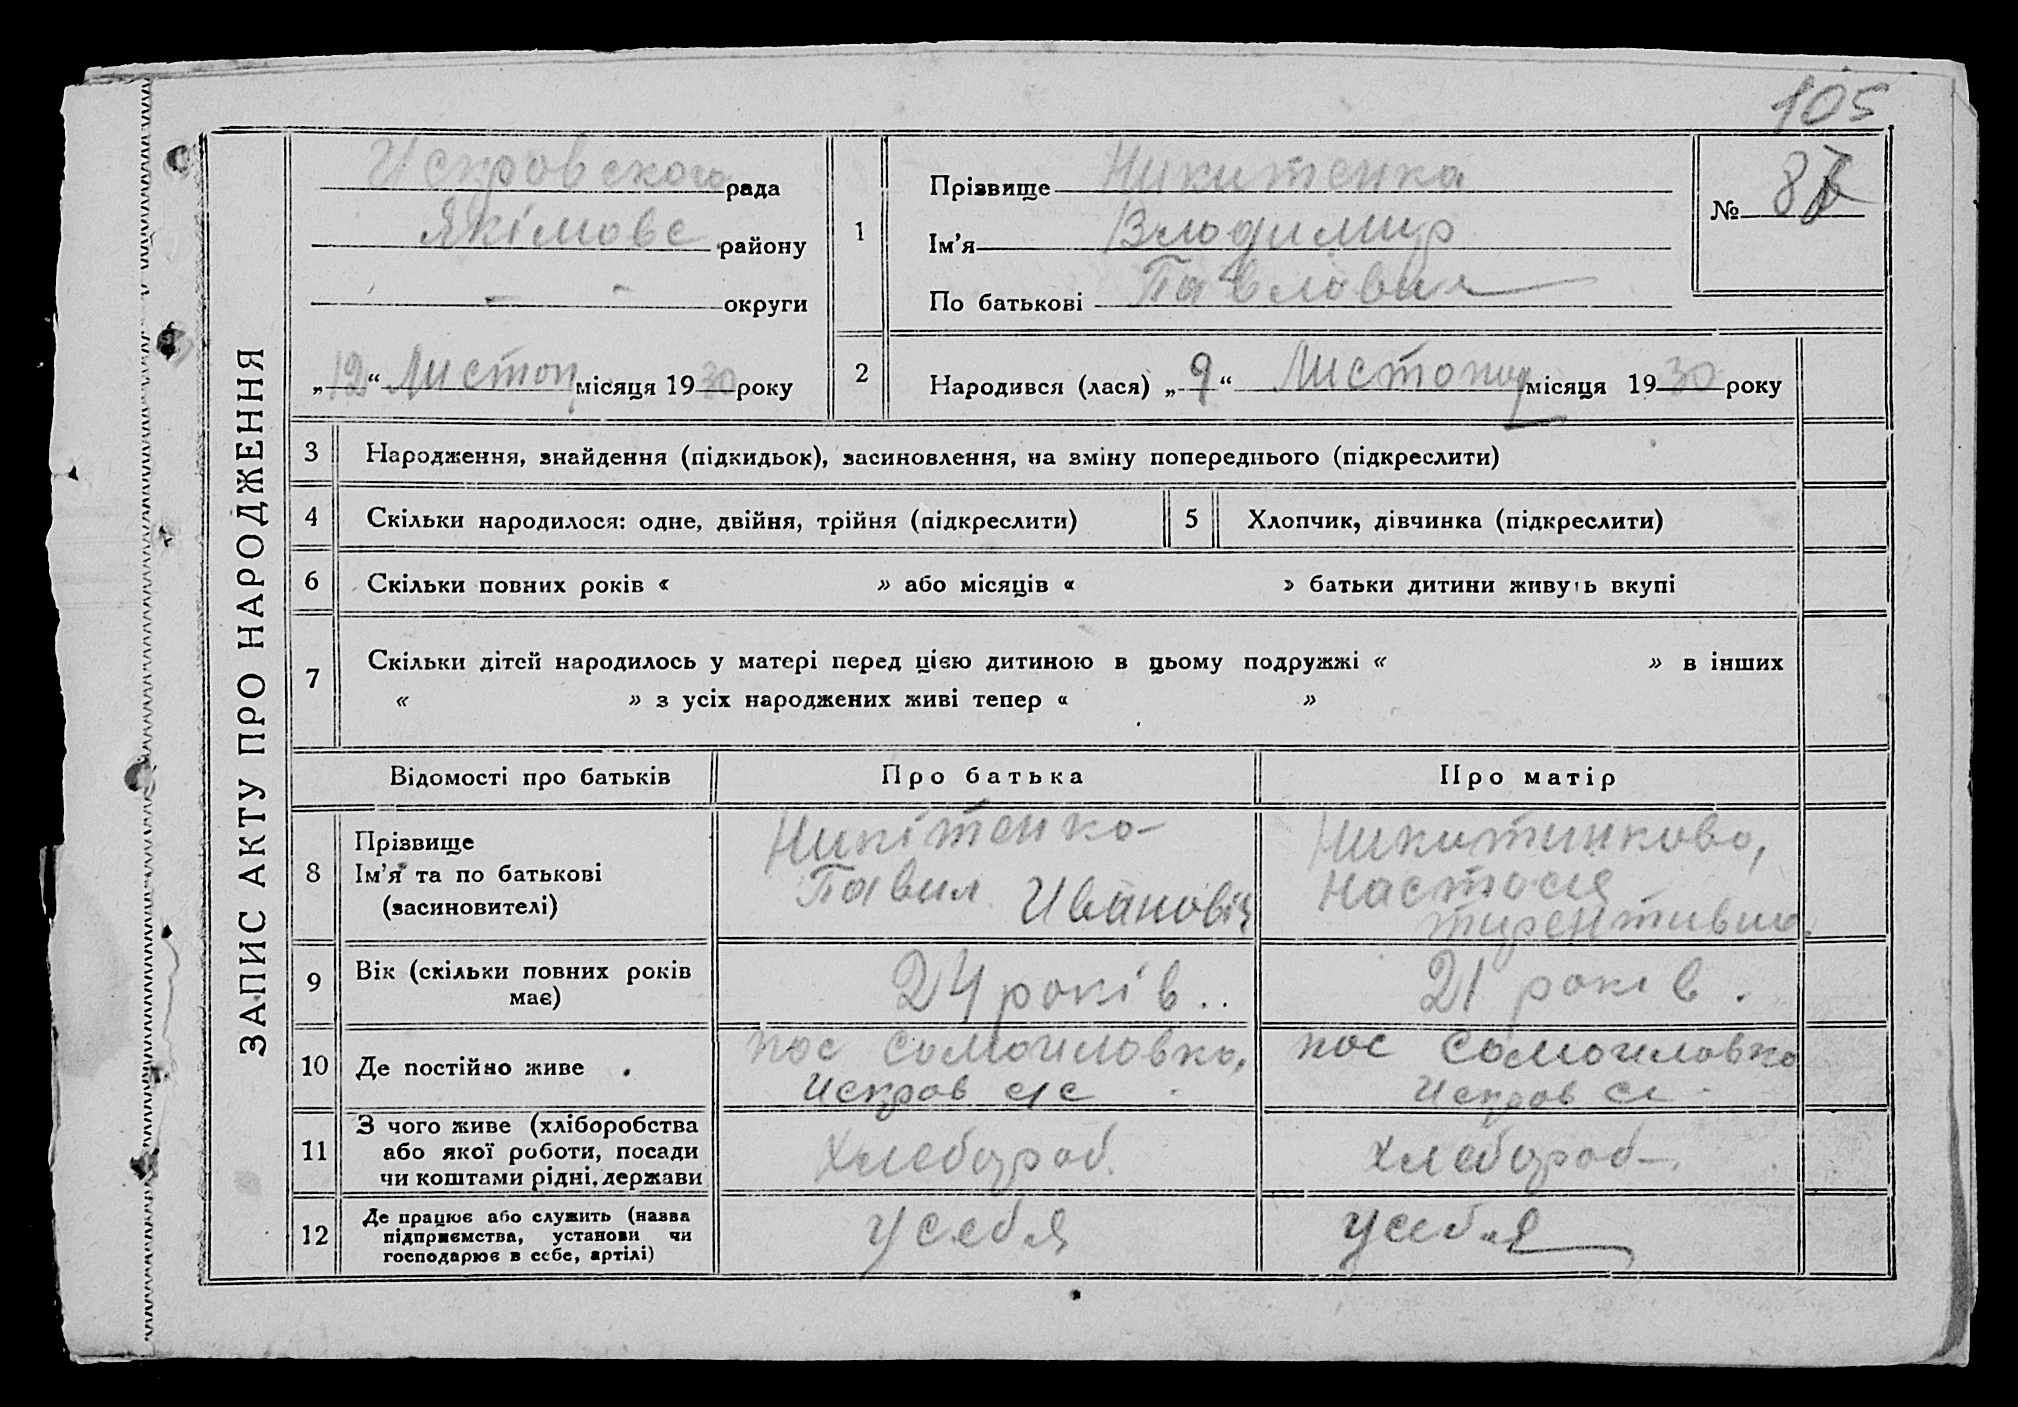 105
ЗАПИС АКТУ ПРО НАРОДЖЕННЯ
Искровского рада
Якімовс району
округи
„12“ Листоп місяця 1930 року
1
Прізвище Никитенко
Ім’я Владимир
По батькові Павлович
№ 87
2
Народився (лася) „9“ Листопад місяця 1930 року
3 Народження, знайдення (підкидьок), засиновлення, на зміну попереднього (підкреслити)
4 Скільки народилося: одне, двійня, трійня (підкреслити)
5 Хлопчик, дівчинка (підкреслити)
6 Скільки повних років « » або місяців « » батьки дитини живуть вкупі
7 Скільки дітей народилось у матері перед цією дитиною в цьому подружжі « » в інших
« » з усіх народжених живі тепер « »
Відомості про батьків
Про батька
Про матір
8 Прізвище
Ім’я та по батькові
(засиновителі)
Никітенко
Павил Иванович
Никитинково,
Настасія
тирентивна
9 Вік (скільки повних років
має)
24 років..
21 років.
10 Де постійно живе
пос Самоиловка,
Искров с/с
пос Самоиловка
Искров сс
11 З чого живе (хліборобства
або якої роботи, посади
чи коштами рідні, держави
Хлебороб.
Хлебороб
12 Де працює або служить (назва
підприємства, установи чи
господарює в себе, артілі)
У себя
У себя